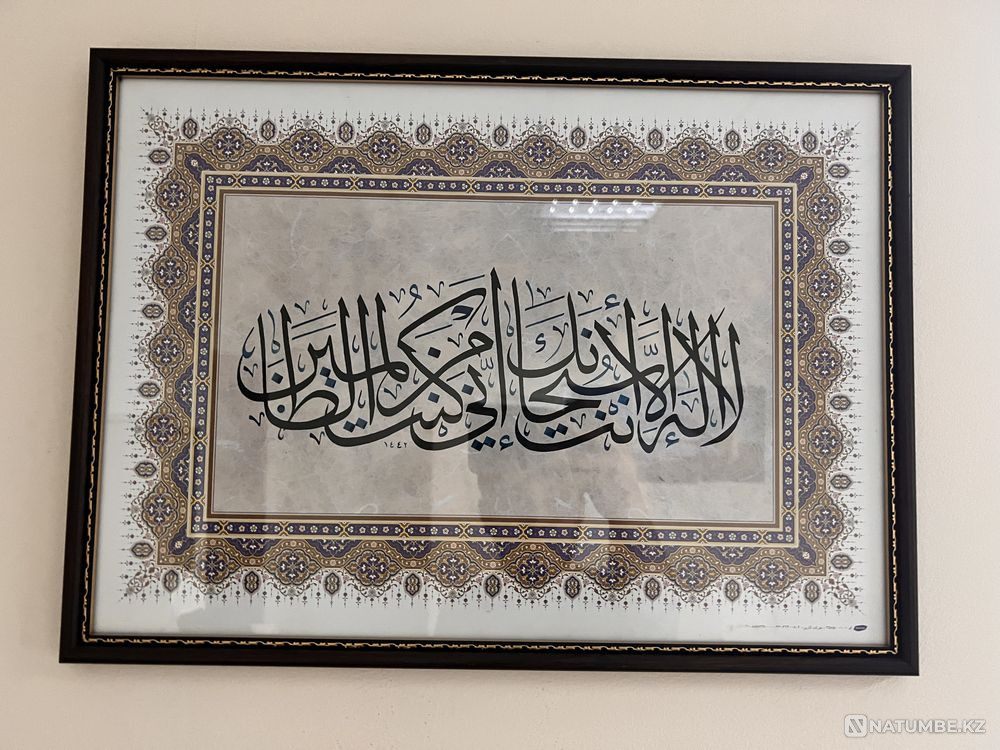 لَا إِلَٰهَ إِلَّا أَنْتَ سُبْحَانَكَ إِنِّي كُنْتُ مِنَ الظَّالِمِينَ
١٤٤٢
NATUMBE.KZ